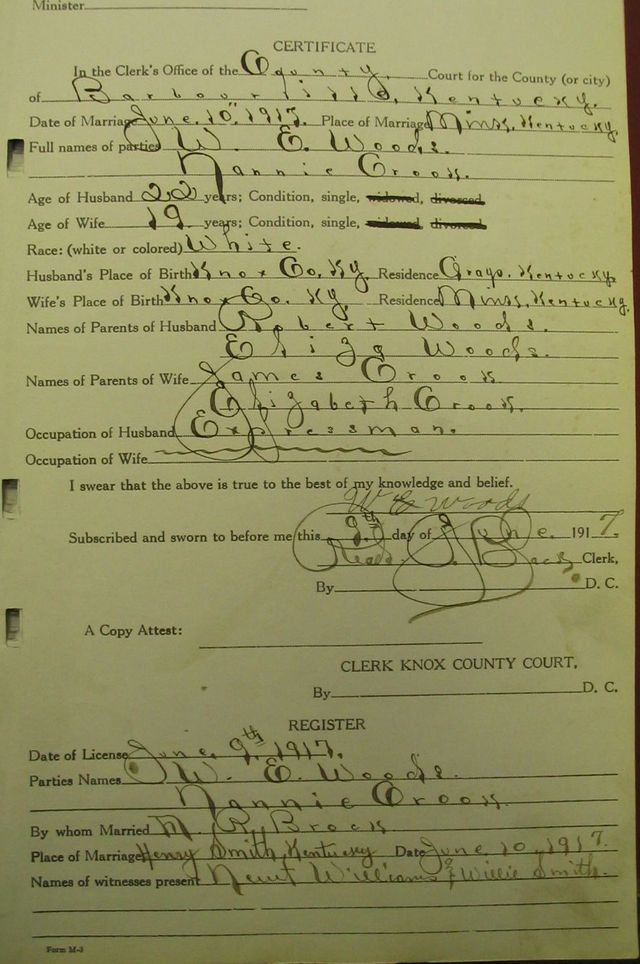 Minister
CERTIFICATE
In the Clerk's Office of the County, Court for the County (or city)
of Barbourville, Kentucky.
Date of Marriage June. 10" 1917. Place of Marriage Mills, Kentucky.
Full names of parties W. E. Woods.
Nannie Crook.
Age of Husband 22 years; Condition, single, widowed, divorced
Age of Wife 19 years; Condition, single, widowed, divorced
Race: (white or colored) White.
Husband's Place of Birth Knox Co, Ky. Residence Grays. Kentucky
Wife's Place of Birth Knox Co. Ky. Residence Mills, Kentucky.
Names of Parents of Husband Robert Woods.
Eliza Woods.
Names of Parents of Wife James Crook
Elizabeth Crook.
Occupation of Husband Expressman.
Occupation of Wife
I swear that the above is true to the best of my knowledge and belief.
W E Woods
Subscribed and sworn to before me this 9th day of June. 1917.
Read. Black Clerk,
By D. C.
A Copy Attest:
CLERK KNOX COUNTY COURT.
By D. C.
REGISTER
Date of License June. 9th 1917.
Parties Names W. E. Woods.
Nannie Crook.
By whom Married M. R. Brock
Place of Marriage Henry Smith, Kentucky Date June 10, 1917.
Names of witnesses present Newt Williams & Willie Smith.
Form M-3